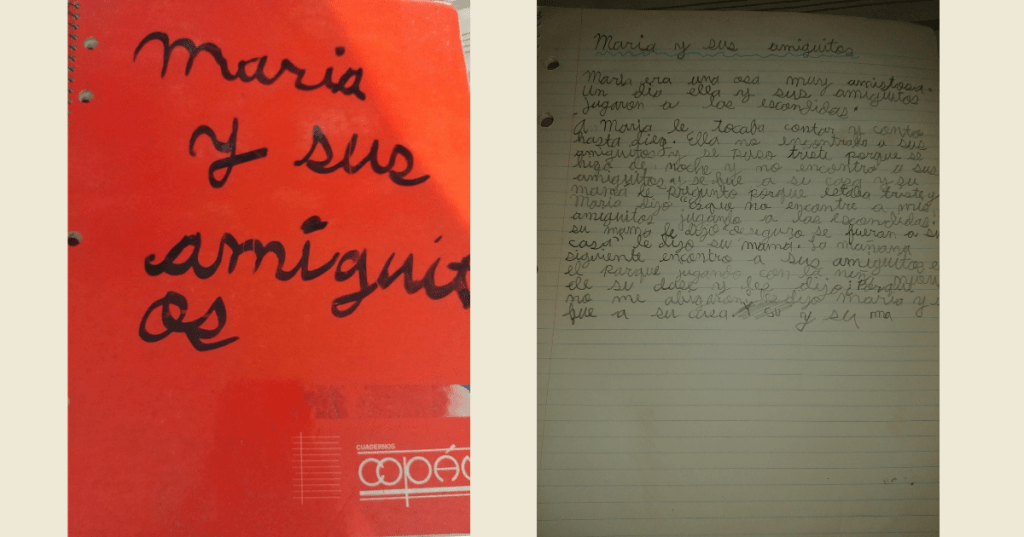 Maria
y sus
amiguit
os
CUADERNOS
COPÁ
Maria y sus amiguitos
Maria era una osa muy amistosa.
Un dia ella y sus amiguitos
jugaron a las escondidas.
A Maria le tocaba contar y conto
hasta diez. Ella no encontraba a sus
amiguitos y se puso triste porque se
hizo de noche y no encontro a sus
amiguitos y se fue a su casa y su
mama le pregunto porque estaba triste y
Maria dijo es que no encontre a mis
amiguitos jugando a las escondidas.
su mama le dijo seguro se fueron a su
casa" le dijo su mama. La mañana
siguiente encontro a sus amiguitos e
el parque jugando con la niña
de su casa y les dijo ¡Porque
no me abisaron, le dijo Maria y
fue a su casa. y su ma